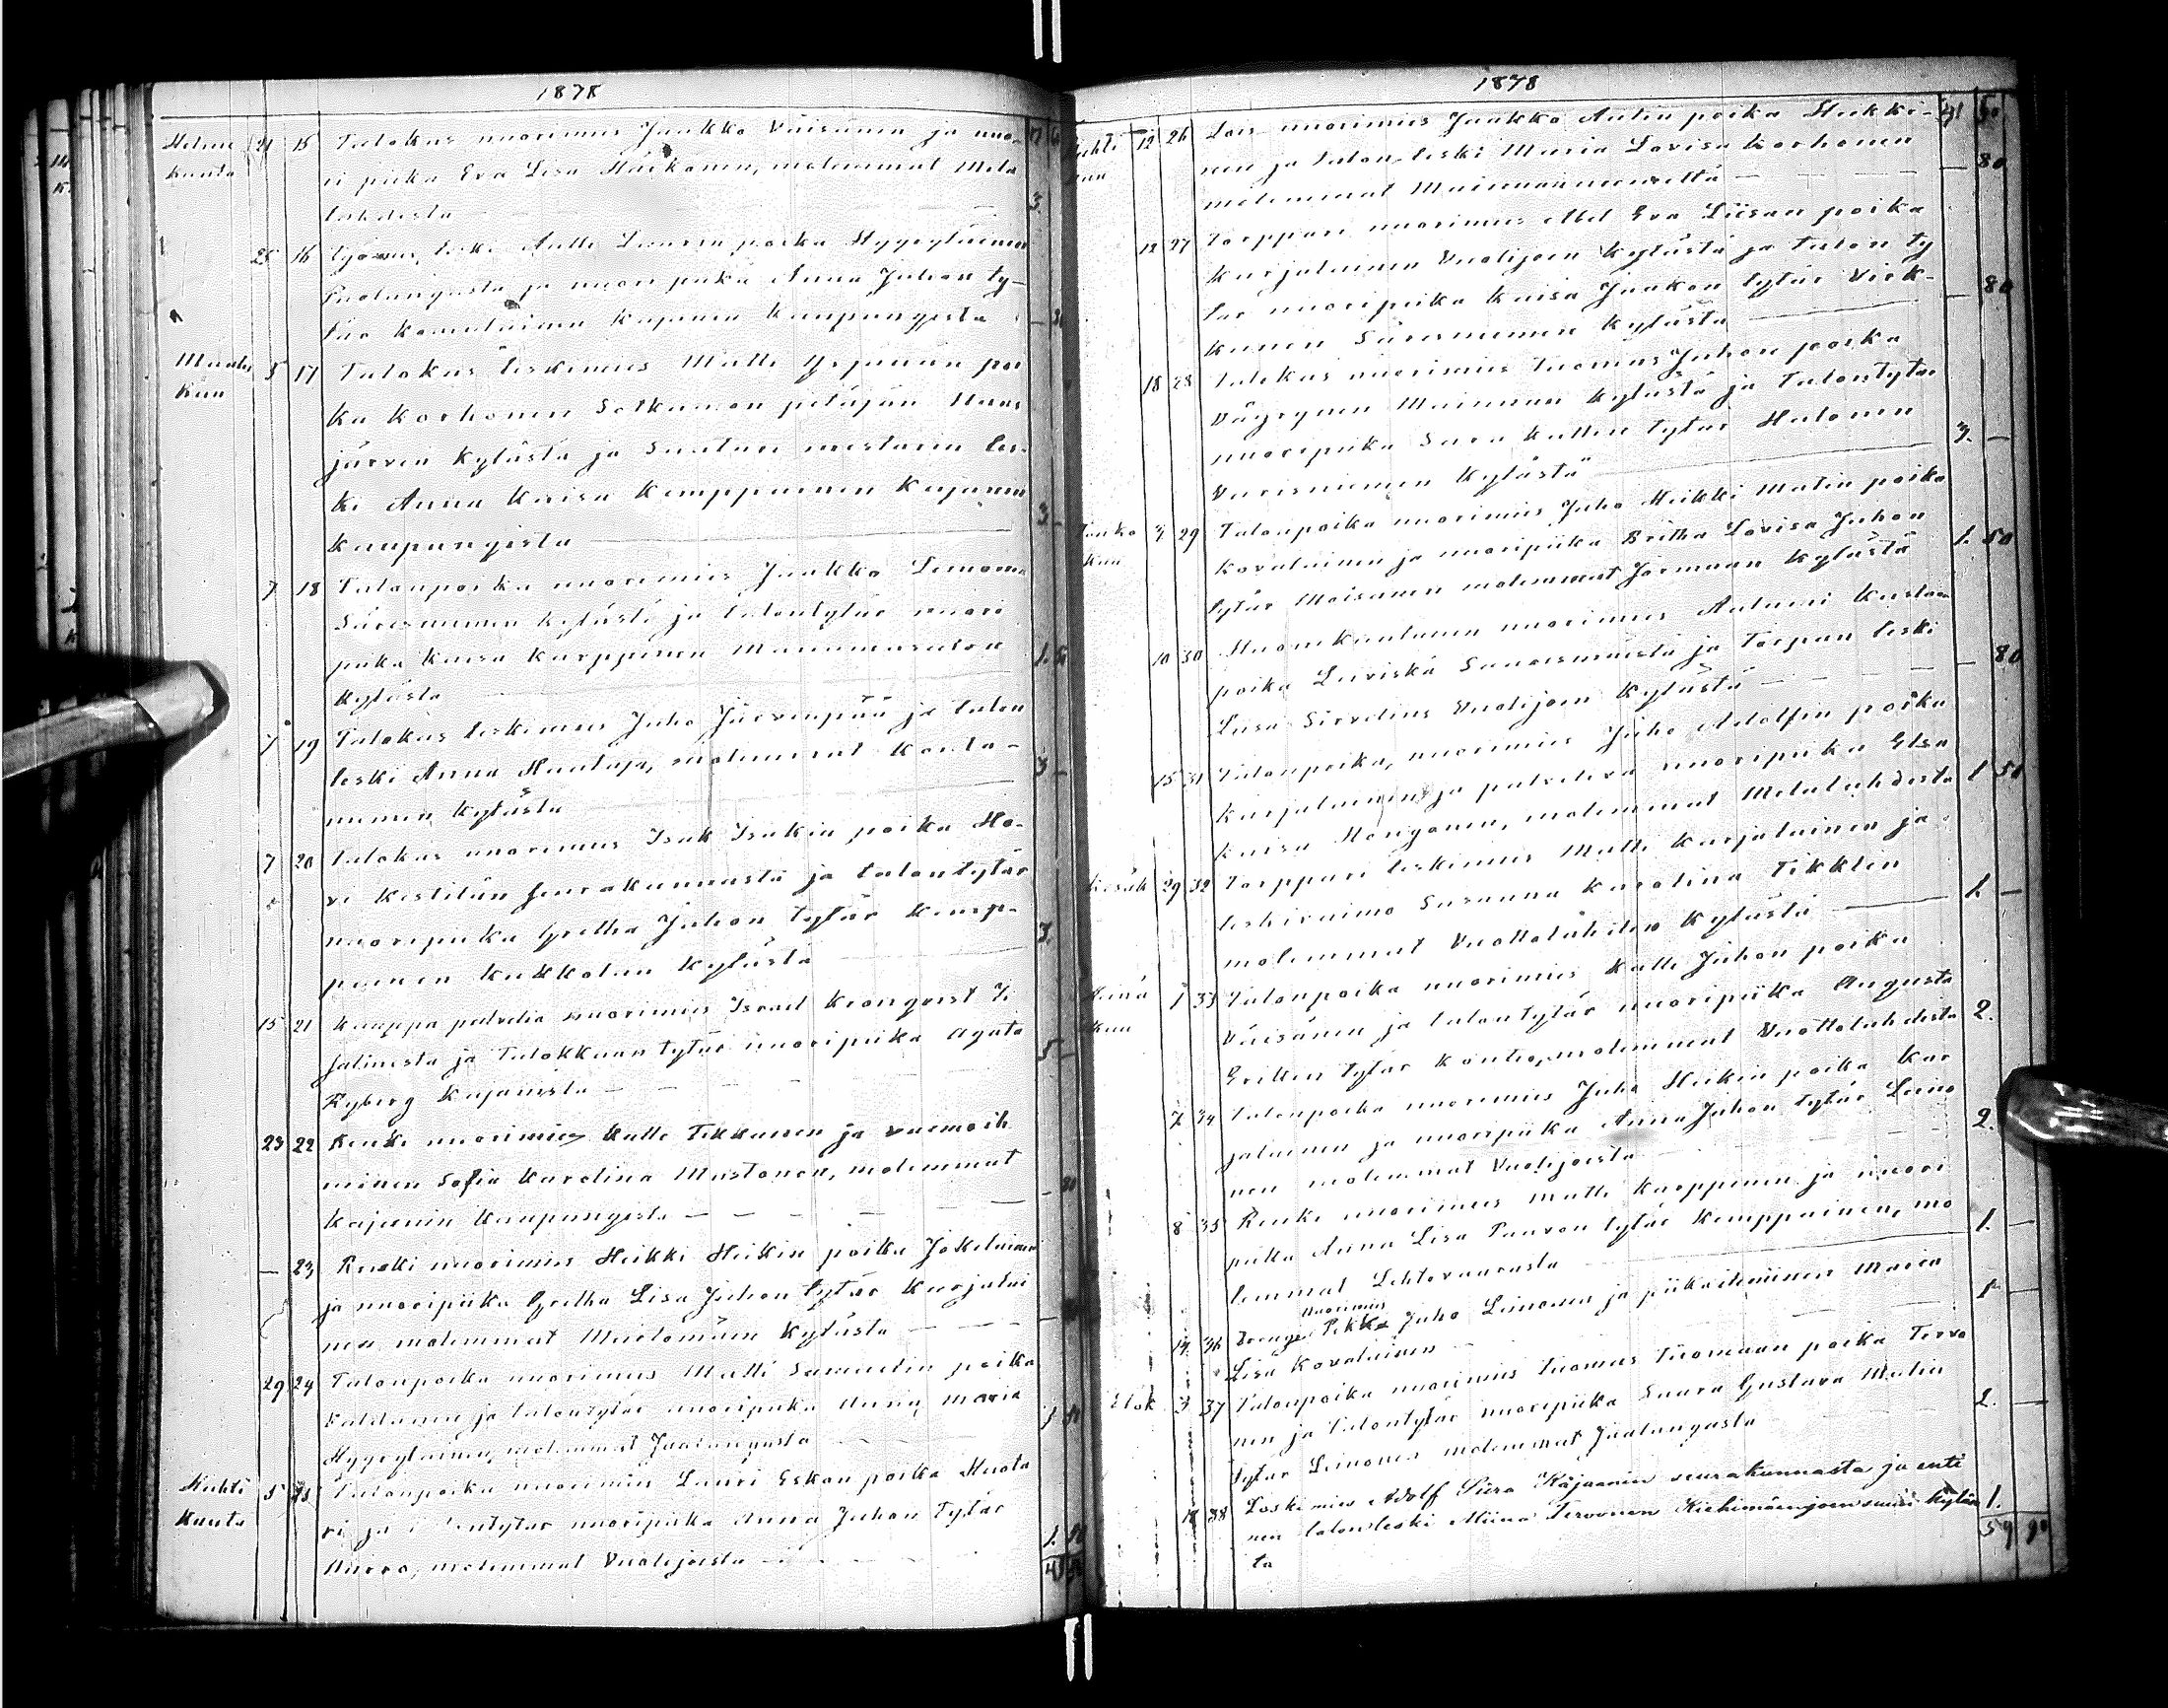 1878
Helmi 21 15 Talokas nuorimies Jaakko Väisänen ja nuo-
kuuta ri piika Eva Lisa Härkönen, molemmat Mela
lahdesta 3.
25 16 Työmies, leski Antti Laurin poika Hyyryläinen
Puolangasta ja nuori piika Anna Juhon ty-
tär Komulainen Kajanin kaupungista
Maalis 5 17 Talokas leskimies Matti Yrjänän poi
kuu ka Korhonen Sotkamon pitäjän
järven kylästä ja Suutari mestarin les-
ki Anna Kaisa Kemppainen Kajanin 3 -
kaupungista
7 18 Talonpoika nuorimies Jaakko Leinonen
Säresniemen kylästä ja talontytär nuori
piika Kaisa Karppinen 1.
kylästä
7 19 Talokas leskimies Juho Järvenpää ja talon
leski Anna Huotaja, molemmat Konta- 3 -
niemen kylästä
7 20 Talokas nuorimies Isak Isakin poika Ho-
vi Kestilän seurakunnasta ja talontytär
nuoripiika Gretha Juhon tytär Kemp- 3.
painen Kukkolan kylästä
15 21 Kauppa palvelia nuorimies Israel Kronqvist Ii
salmesta ja Talokkaan tytär nuoripiika Agata 5 -
Ryberg Kajanista
23 22 Renki nuorimies Kalle Tikkanen ja vaimoih
minen Sofia Karolina Mustonen, molemmat - 80
Kajanin kaupungista
- 23 Renki nuorimies Heikki Heikin poika Jokelainen
ja nuoripiika Gretha Lisa Juhon tytär Karjalai
nen molemmat Mieslahden kylästä
29 24 Talonpoika nuorimies Matti Samuelin poika
ja talontytär nuoripiika Anna Maria
Hyyryläinen, molemmat Jaalangasta
Huhti 5 25 Talonpoika nuorimies Lauri Eskon poika Huota
kuuta ri ja talontytär nuoripiika Anna Juhon tytär 1.
molemmat Vuolijoesta
1878
Huhti 12 26 Lois nuorimies Jaakko Antin poika Heikki-
kuu nen ja talon leski Maria Lovisa Korhonen - 80
molemmat Mainuanniemeltä
12 27 Torppari nuorimies Abel Eva Liisan poika
Karjalainen Vuolijoen kylästä ja talon ty
tär nuoripiika Kaisa Jaakon tytär Virk- - 80
kunen Säresniemen kylästä
18 28 Talokas nuorimies Tuomas Juhon poika
Väyrynen Mainuan kylästä ja Talontytär
nuoripiika Sara Kallen tytär Halonen 3. -
Varisniemen kylästä
Touko 3 29 Talonpoika nuorimies Juho Heikki Matin poika
kuu Kovalainen ja nuoripiika Britha Lovisa Juhon 1. 50
tytär Moisanen molemmat Jormuan kylästä
10 30 Huonekuntainen nuorimies Antmi Kustaan
poika Leiviskä Säresniemestä ja Torpan leski - 80
Liisa Sirvelius Vuolijoen kylästä
15 31 Talonpoika, nuorimies Juho Adolfin poika
Karjalainen ja palveleva nuoripiika Elsa 1 50
Kaisa Hongonen, molemmat Melalahdesta
Kesäk 29 32 Torppari leskimies Matti Karjalainen ja
leskivaimo Susanna Karolina Tikklin 1. -
molemmat Vuottolahden kylästä
Heinä 1 33 Talonpoika nuorimies Kalle Juhon poika
kuu Väisänen ja talontytär nuoripiika Augusta 2.
Erikin tytär Kontio, molemmat Vuottolahdesta
7 34 Talonpoika nuorimies Juho Heikin poika Kar
jalainen ja nuoripiika Anna Juhon tytär Leino 2.
nen molemmat Vuolijoesta
8 35 Renki nuorimies Matti Karppinen ja nuori
piika Anna Lisa Paavon tytär Kemppainen, mo 1. -
lemmat Lehtovaarasta
nuorimies
14 36 Pekka Juho Leinonen ja piikaihminen Maria 1 -
Lisa Kovalainen
Elok 3 37 Talonpoika nuorimies Tuomas Tuomaan poika Tervo
nen ja Talontytär nuoripiika Saara Gustava Matin 2. -
tytär Leinonen molemmat Jaalangasta
18 38 Leskimies Adolf Piira Kajaanin seurakunnasta ja enti
nen talonleski Miina Tervonen Kiehimänjoensuun kyläs 1.
ta 59 90